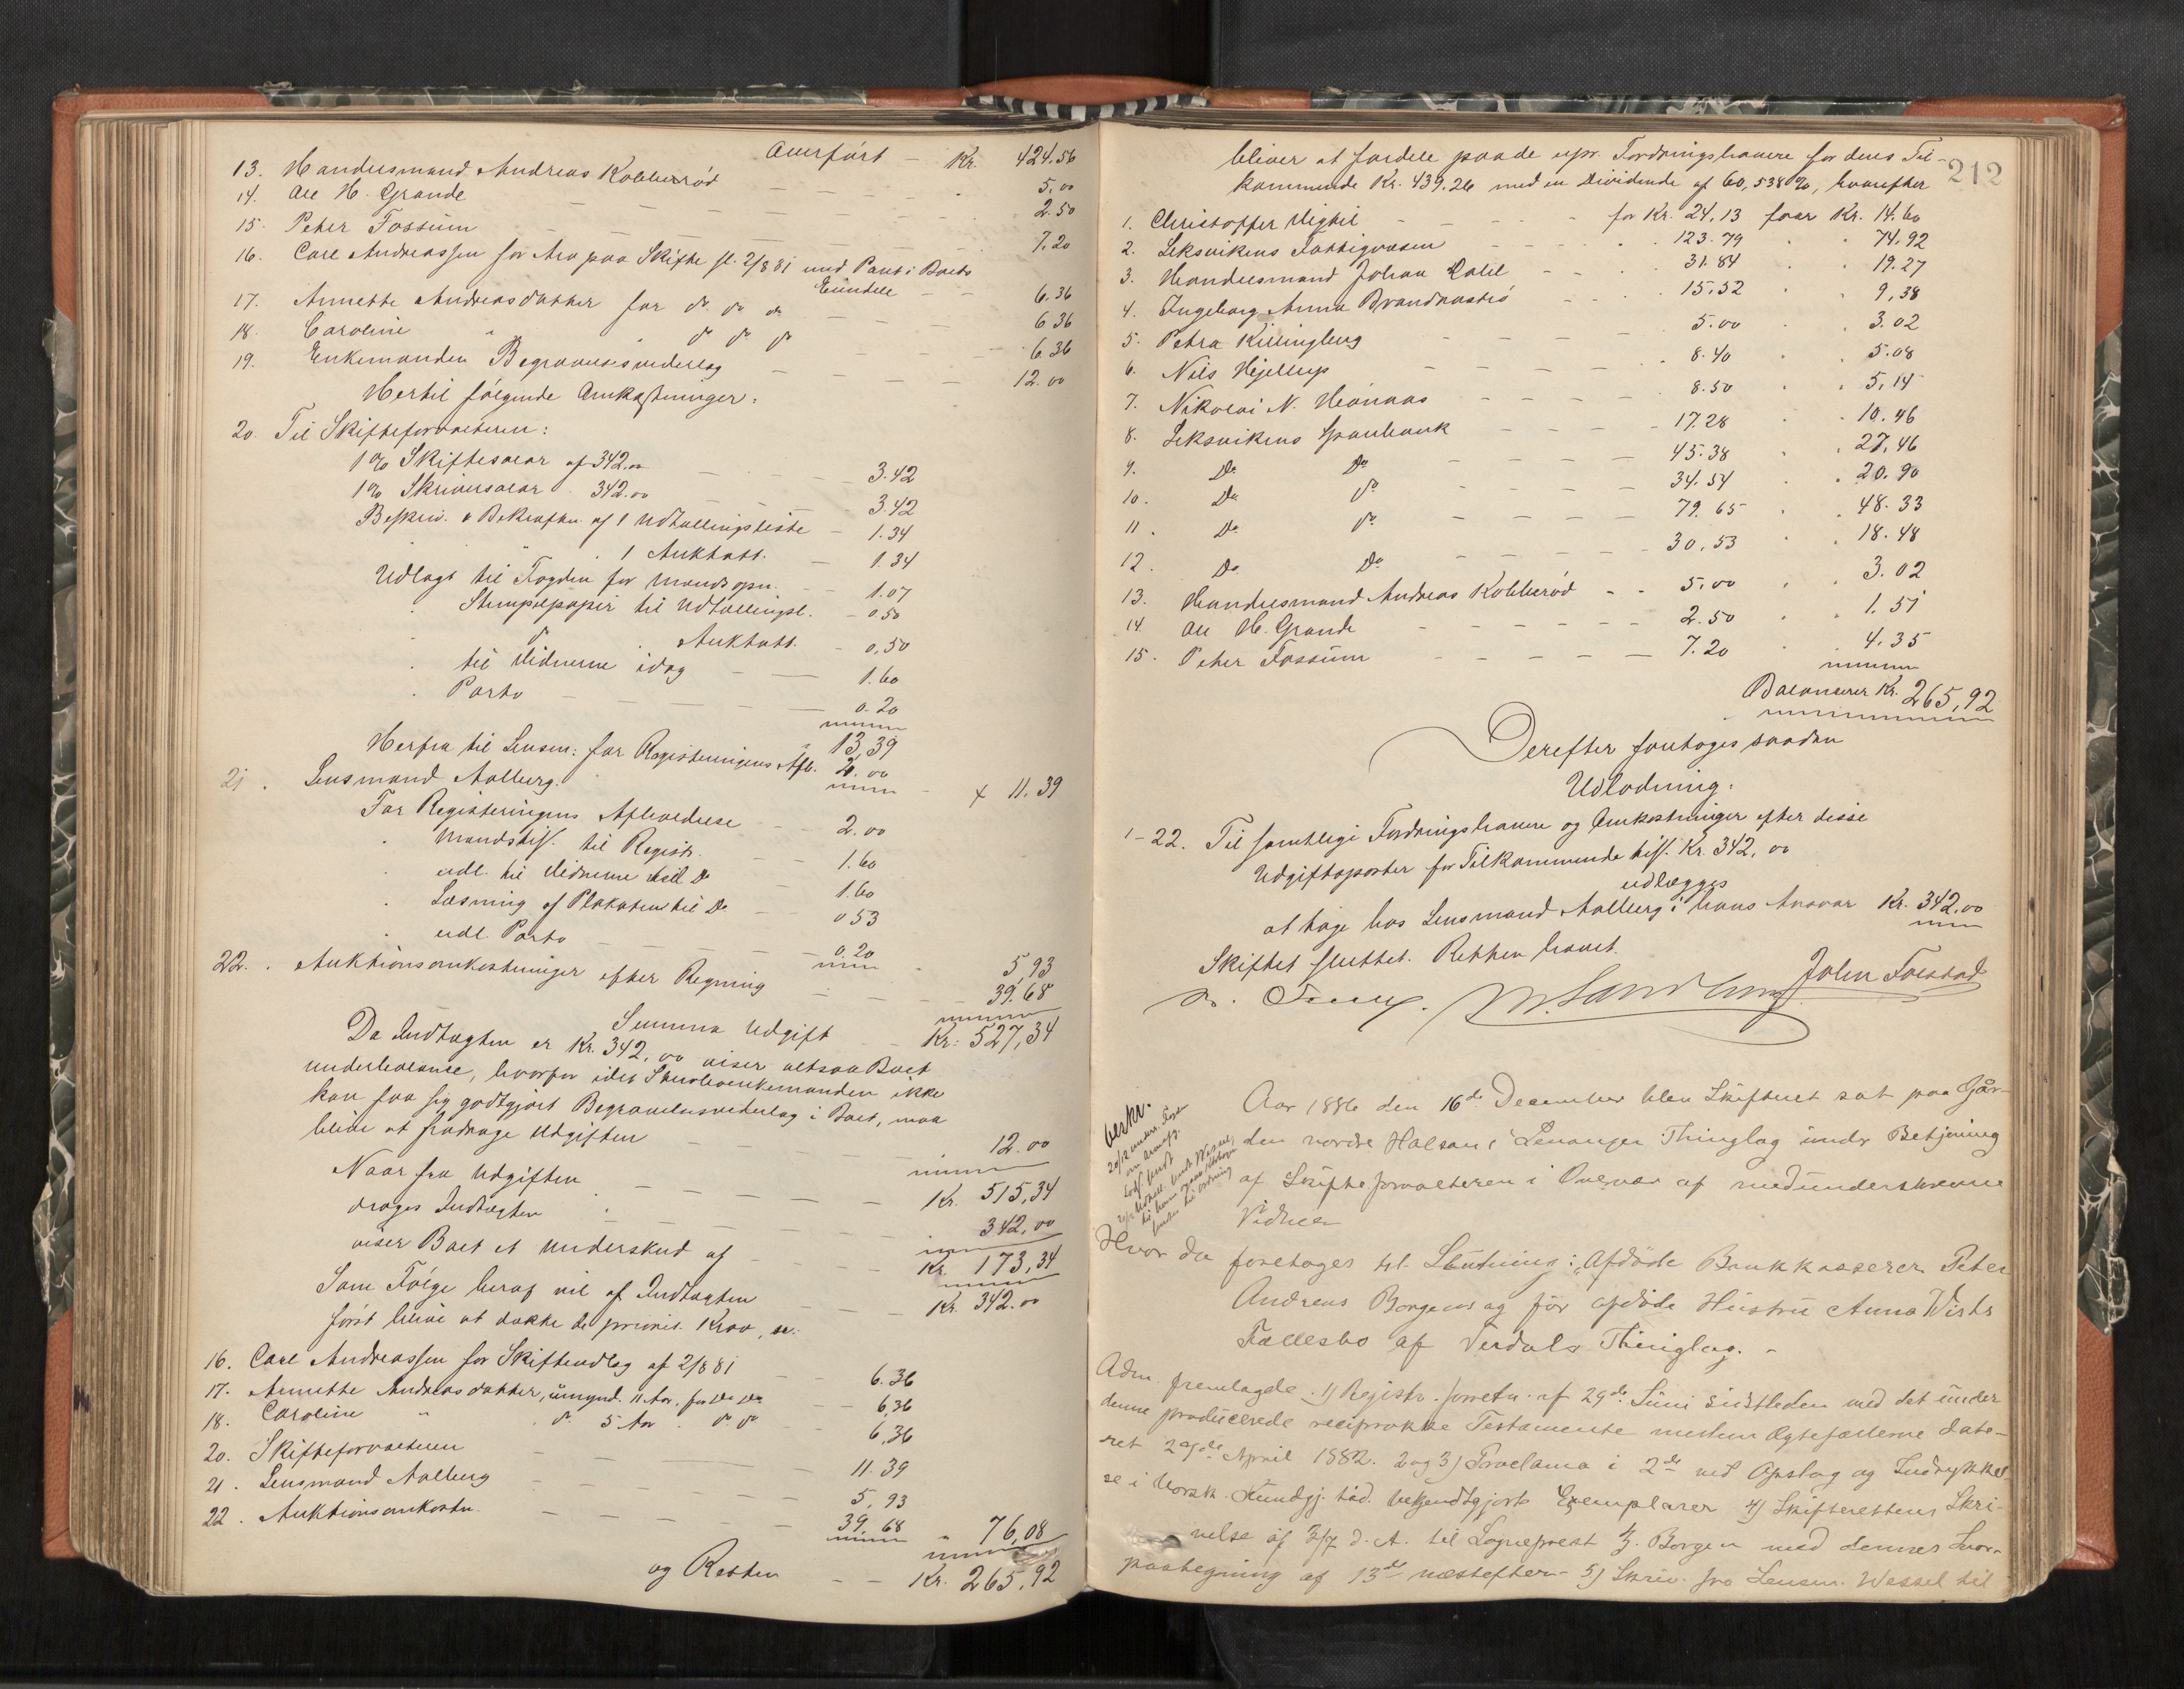 Overført - Kr. 424.56
13. Handelsmand Andreas Kobberrød - - - 5,00
14. Ole H. Grande - - - 2.50
15. Peter Fossum - - - 7.20
16. Carl Andreassen for Arv paa Skifte sl. 2/8 81 med Pant i Boets
Eiendele - - 6,36
17. Annette Andreasdatter for do do do - - - 6 36
18. Caroline " do do do - - 6 36
19. Enkemanden Begravelsesvederlag - - - 12.00
Hertil følgende Omkostninger:
20. Til Skifteforvalteren:
1% Skiftesalær af 342.00 - - 3.42
1% Skriversalær 342.00 - - 3.42
Beskriv. & Bekræftn. af 1 Udtællingsliste - 1.34
" " 1 Auktatt. - 1.34
Udlagt til Fogden for Mandsopn. - 1.07
" Stempelpapir til Udtællingsl. - 0.50
" do " Auktatt. - 0,50
" til Vidnerne idag - 1.60
" Porto - - - 0.20
13,39
Herfra til Lensm: for Registeringens Afh. 2.00
+ 11.39
21. Lensmand Aalberg.
For Registeringens Afholdelse - 2.00
" Mandstilf. til Registr. - 1.60
" udl. til Vidnerne til Do - 1.60
" Læsning af Plakaten til Do - 0 53
" udl. Porto - - 0.20
5,93
22. Auktionsomkostninger efter Regning - - 39.68
Summa Udgift - Kr: 527,34
Da Indtægten er Kr. 342,00 viser altsaa Boet
underbalance, hvorfor idet Sterbeenkemanden ikke
kan faa sig godtgjort Begravelsesvederlag i Boet, maa
blive at fradrage Udgiften - - - 12.00
Naar fra Udgiften - - - Kr. 515,34
drages Indtægten - - - 342,00
viser Boet et Underskud af - Kr. 173,34
Som Følge heraf vil af Indtægten - - - Kr. 342.00
først blive at dække de priorit. Krav, se:
16. Carl Andreassen for Skifteudlæg af 2/8 81 - - 6.36
17. Annette Andreasdatter, umynd. 11 Aar, for do do - 6,36
18. Caroline " do 5 Aar " do do - 6,36
20. Skifteforvalteren - - - 11.39
21. Lensmand Aalberg - - - 5,93
22. Auktionsomkostn. - - - 39,68 " 76,08
og Resten - - Kr. 265,92
212
bliver at fordele paa de upr. Fordringshavere for deres Til-
kommende Kr. 439.26 med en Dividende af 60,538%, hvorefter
1. Christopher Vigtil - - - for Kr. 24.13 faar Kr. 14.60
2. Leksvikens Fattigvæsen - - - 123.79 " 74.92
3. Handelsmand Johan Dalil - - 31.84 " 19.27
4. Ingeborg Anna Brandaastrø - - 15,52 " 9,38
5. Petra Killingberg - - - 5.00 " 3.02
6. Nils Hjellup - - - 8.40 " 5.08
7. Nikolai N. Hванaas - - - 8.50 " 5,14
8. Leksvikens Sparebank - - - 17.28 " 10.46
9. Do Do - - - 45.38 " 27,46
10. Do Do - - - 34.54 " 20.90
11. Do Do - - - 79.65 " 48.33
12. Do Do - - - 30,53 " 18.48
13. Handelsmand Andreas Kobberød - - 5,00 " 3.02
14. Ole H. Grande - - - 2.50 " 1.51
15. Peter Fossum - - - 7.20 " 4.35
Balancerer Kr. 265,92
Derefter foretoges saadan
Udlodning:
1-22. Til samtlige Fordringshavere og Omkostninger efter disse
Udgiftsposter for Tilkommende tils. Kr. 342,00
udlægges
at tage hos Lensmand Aalberg i hans Ansvar Kr. 342,00
Skiftet sluttet. Retten hævet.
M. Sandberg John Forstad
beskr.
Aar 1886 den 16de December blev Skifteret sat paa Går-
den nordre Halsan i Levanger Thinglag under Betjening
af Skifteforvalteren i Overvær af medunderskrevne
Vidner
Hvor da foretoges til Slutning: Afdøde Bankkasserer Peter
Andreas Borgens og før afdøde Hustru Anna Wists
Fællesbo af Verdals Thinglag. -
Adm. fremlagde. 1) Registr. forretn. af 29de Juni sidstleden med det under
denne producerede reciprokke Testamente mellem Ægtefællerne date-
ret 29de April 1882. 2 og 3) Proclama i 2de ved Opslag og Indrykkel-
se i Norsk. Kundgj. tid. bekjendtgjorte Exemplarer 4) Skifterettens Skri-
velse af 3/7 d. A. til Sogneprest J. Borgen med dennes Svar-
paategning af 13de næstefter - 5) Skriv. fra Lensm. Wessel til